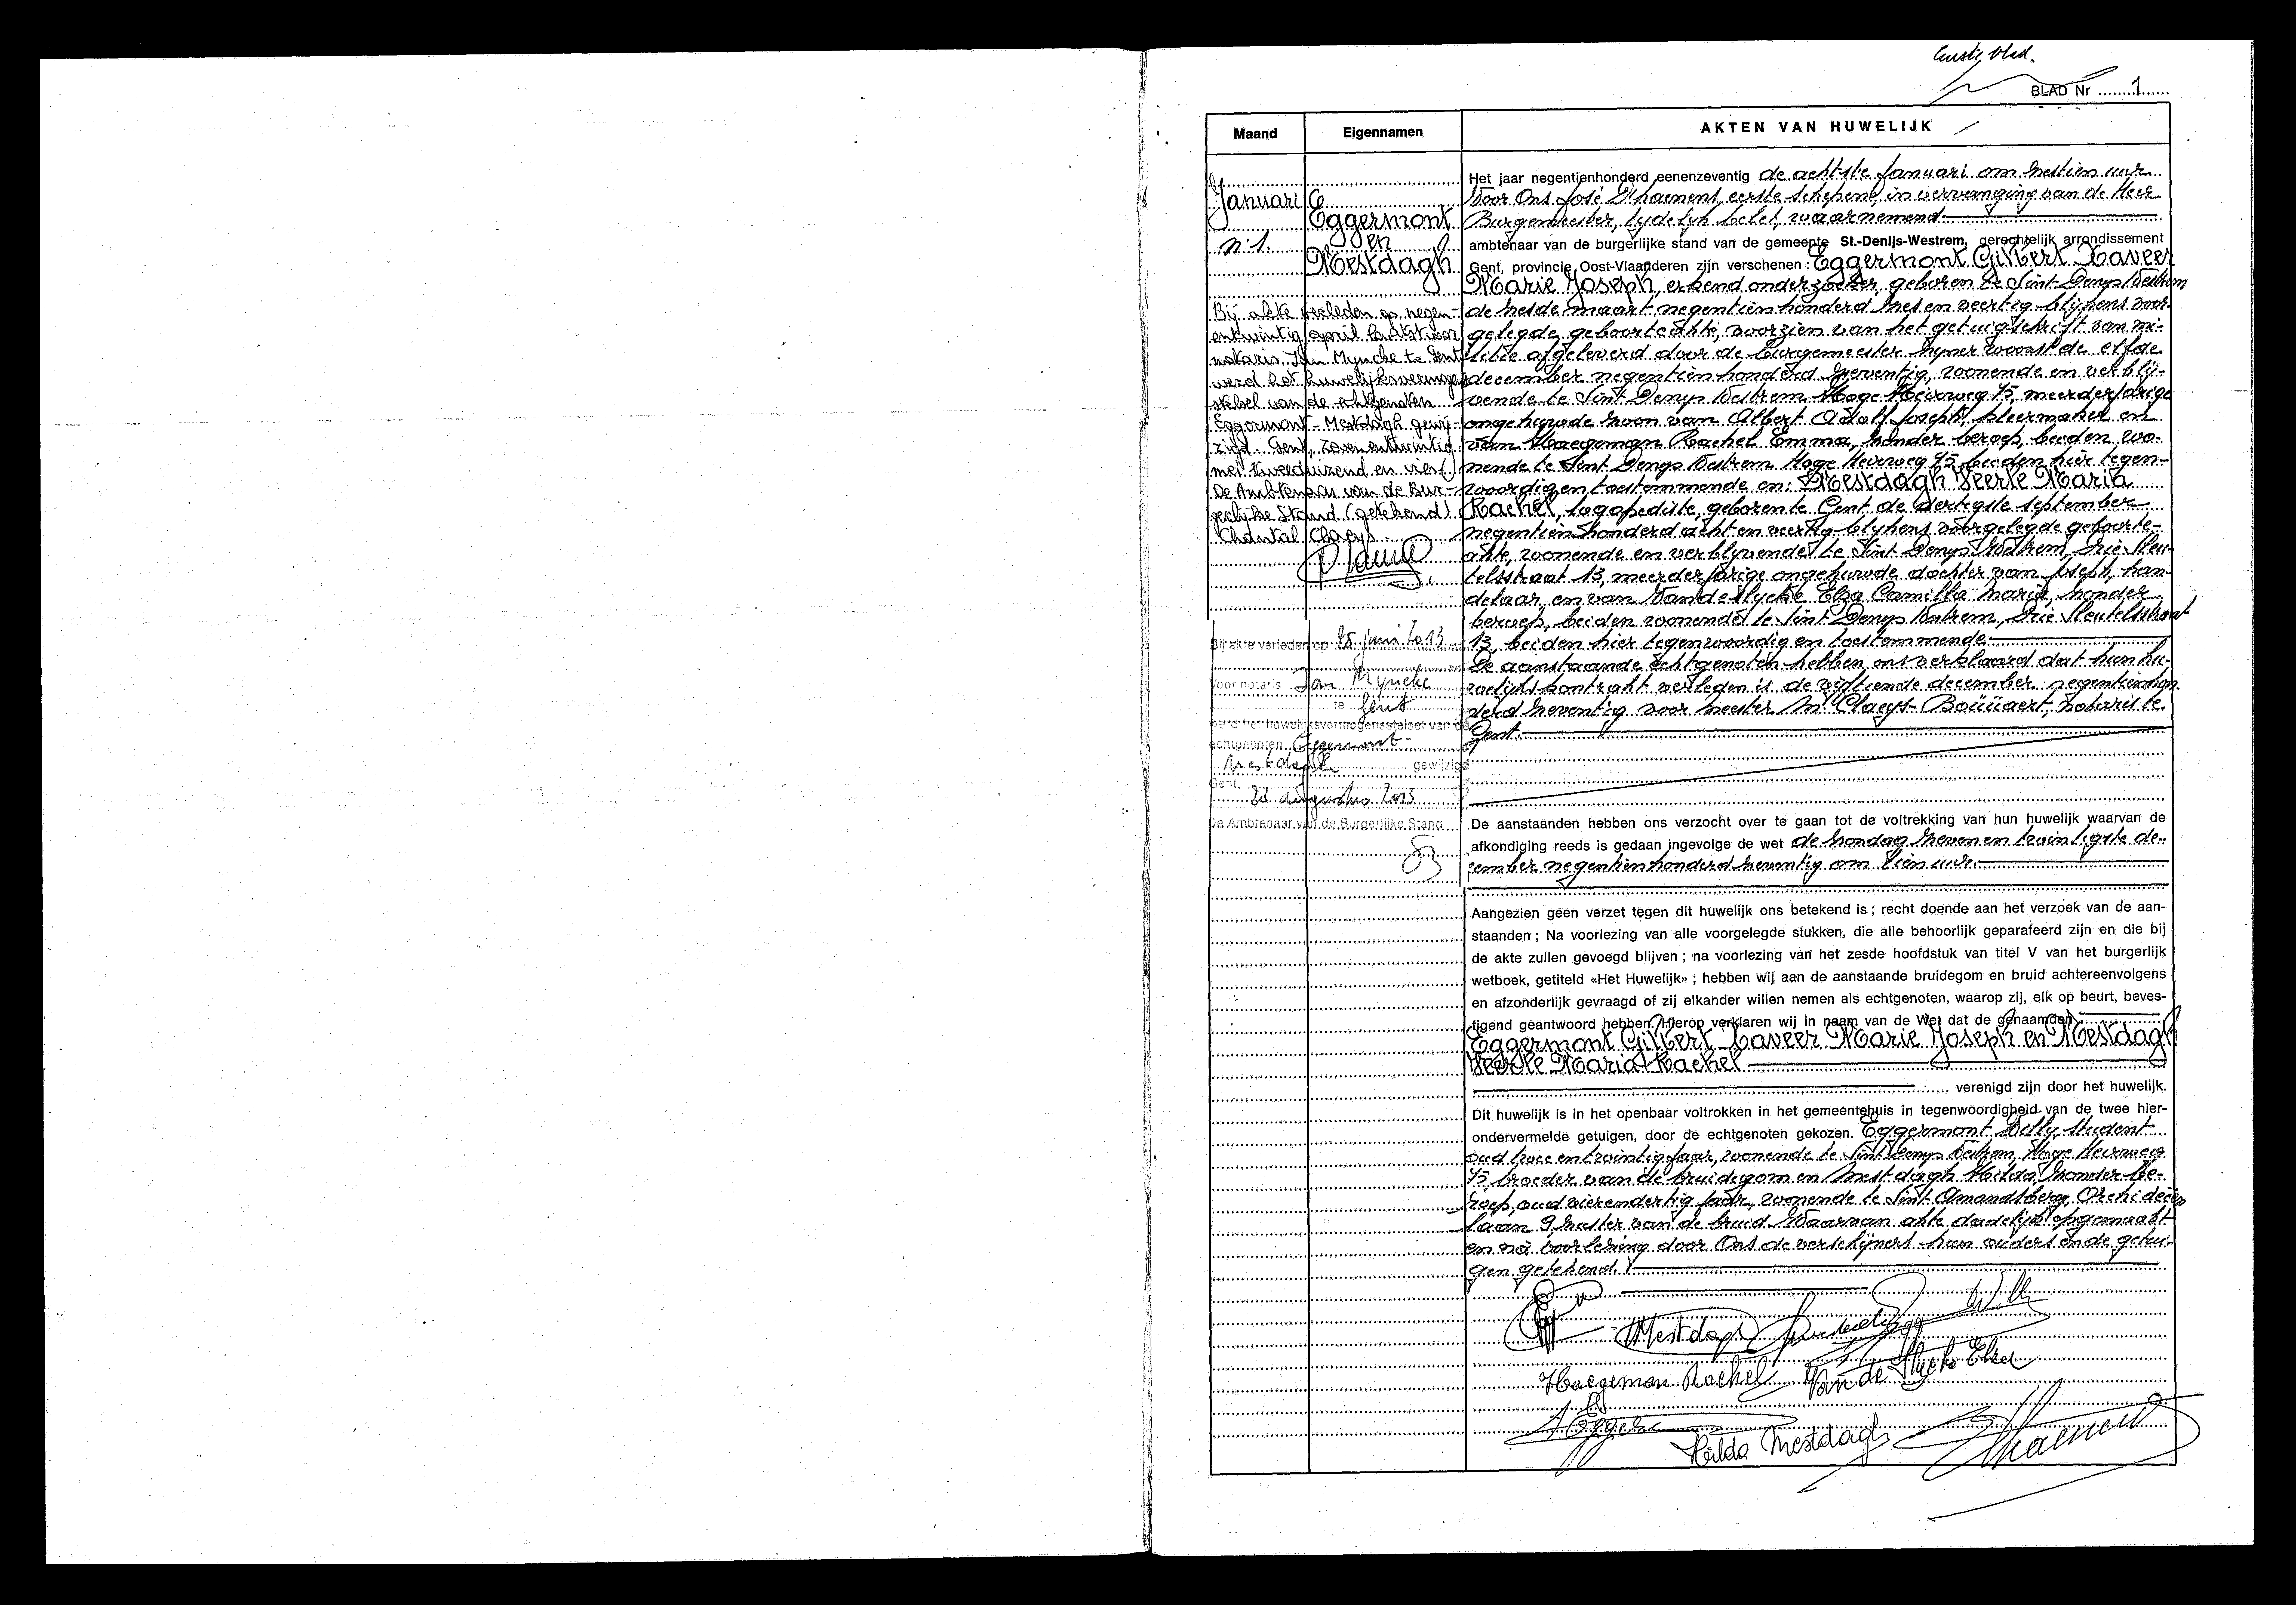 Eerste blad.
BLAD Nr 1
Maand
Eigennamen
AKTEN VAN HUWELIJK
Januari
n: 1.
Eggermont
en
Mestdagh
Bij akte verleden op negen-
entwintig april laatst voor
notaris Jan Myncke te Gent
werd het huwelijksvermogens
stelsel van de echtgenoten
Eggermont - Mestdagh gewij-
zigd. Gent, zevenentwintig
mei tweeduizend en vier
De Ambtenaar van de Bur-
gerlijke Stand (getekend)
Chantal Claeys.
Bij akte verleden op 25 juni 2013
Voor notaris Jan Myncke
te Gent
werd het huwelijksvermogensstelsel van de
echtgenoten Eggermont-
Mestdagh gewijzigd
Gent, 23 augustus 2013
De Ambtenaar van de Burgerlijke Stand
Het jaar negentienhonderd eenenzeventig de achtste Januari om zestien uur
Voor Ons José D'haenens, eerste schepene, in vervanging van de Heer
Burgemeester, tijdelijk belet, waarnemend
ambtenaar van de burgerlijke stand van de gemeente St.-Denijs-Westrem, gerechtelijk arrondissement
Gent, provincie Oost-Vlaanderen zijn verschenen : Eggermont Gilbert Xaveer
Marie Joseph, erkend onderzoeker, geboren te Sint-Denys-Westrem
de zesde maart negentienhonderd zes en veertig blijkens voor-
gelegde geboorteakte, voorzien van het getuigschrift van mi-
litie afgeleverd door de burgemeester zijner woonst de elfde
december negentienhonderd zeventig, wonende en verblij-
vende te Sint-Denys-Westrem Hoge Heirweg 45, meerderjarige
ongehuwde zoon van Albert Adolf Joseph, kleermaker en
van Haegeman Rachel Emma, zonder beroep, beiden wo-
nende te Sint-Denys-Westrem Hoge Heirweg 45 beiden hier tegen-
woordig en toestemmende en: Mestdagh Veerle Maria
Rachel, logopediste, geboren te Gent de dertigste september
negentienhonderd acht en veertig blijkens voorgelegde geboorte-
akte, wonende en verblijvende te Sint-Denys-Westrem, Drie Sleu-
telsstraat 13, meerderjarige ongehuwde dochter van Joseph, han-
delaar, en van Van de Slycke Elza Camilla Maria, zonder
beroep, beiden wonende te Sint-Denys-Westrem, Drie Sleutelsstraat
13, beiden hier tegenwoordig en toestemmende
De aanstaande echtgenoten hebben ons verklaard dat hun hu-
welijkskontrakt verleden is de vijftiende december negentienhon-
derd zeventig voor meester M. Claeys-Boüüaert, notaris te
Gent.
De aanstaanden hebben ons verzocht over te gaan tot de voltrekking van hun huwelijk waarvan de
afkondiging reeds is gedaan ingevolge de wet de zondag zeven en twintigste de-
cember negentienhonderd zeventig om tien uur.
Aangezien geen verzet tegen dit huwelijk ons betekend is ; recht doende aan het verzoek van de aan-
staanden ; Na voorlezing van alle voorgelegde stukken, die alle behoorlijk geparafeerd zijn en die bij
de akte zullen gevoegd blijven ; na voorlezing van het zesde hoofdstuk van titel V van het burgerlijk
wetboek, getiteld «Het Huwelijk» ; hebben wij aan de aanstaande bruidegom en bruid achtereenvolgens
en afzonderlijk gevraagd of zij elkander willen nemen als echtgenoten, waarop zij, elk op beurt, beves-
tigend geantwoord hebben. Hierop verklaren wij in naam van de Wet dat de genaamden
Eggermont Gilbert Xaveer Marie Joseph en Mestdagh
Veerle Maria Rachel
verenigd zijn door het huwelijk.
Dit huwelijk is in het openbaar voltrokken in het gemeentehuis in tegenwoordigheid van de twee hier-
ondervermelde getuigen, door de echtgenoten gekozen. Eggermont Willy, student
oud twee en twintig jaar, wonende te Sint-Denys-Westrem, Hoge Heirweg
45, broeder van de bruidegom en Mestdagh Hilda, zonder be-
roep, oud vierendertig jaar, wonende te Sint-Amandsberg, Orchideeën
laan 9, zuster van de bruid. Waarvan akte dadelijk opgemaakt
en na voorlezing door Ons de verschijners hun ouders en de getui-
gen getekend.
Mestdagh
Willy
Haegeman Rachel Van de Slycke Elza
Hilda Mestdagh